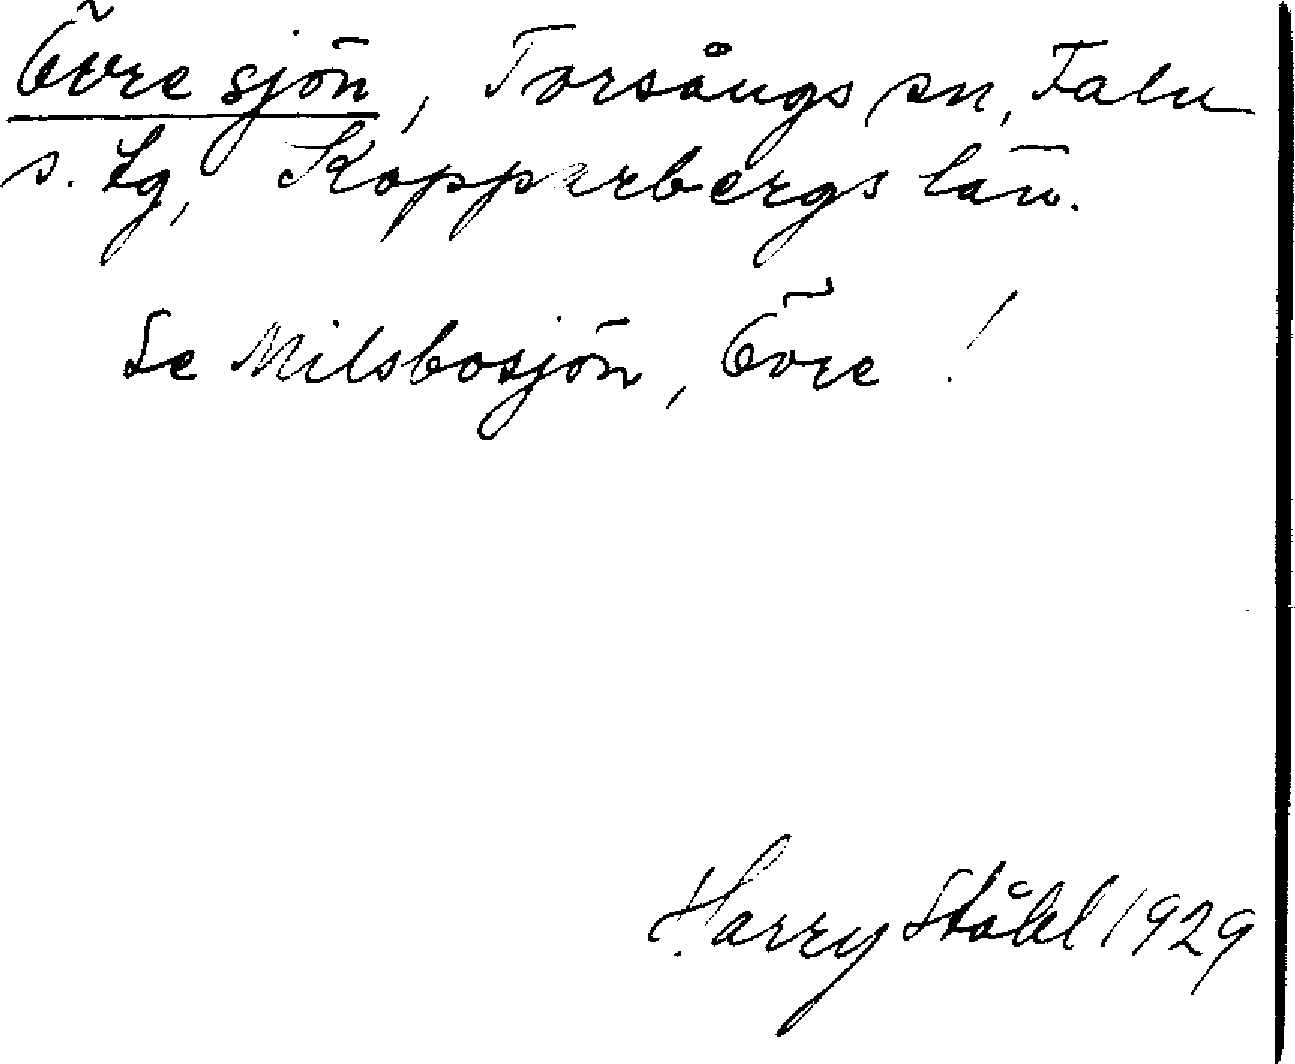 Övre sjön, Torsångs sn, Falu
s. tg, Kopparbergs län.
Se Milsbosjön, Övre!
Harry Ståhl 1929